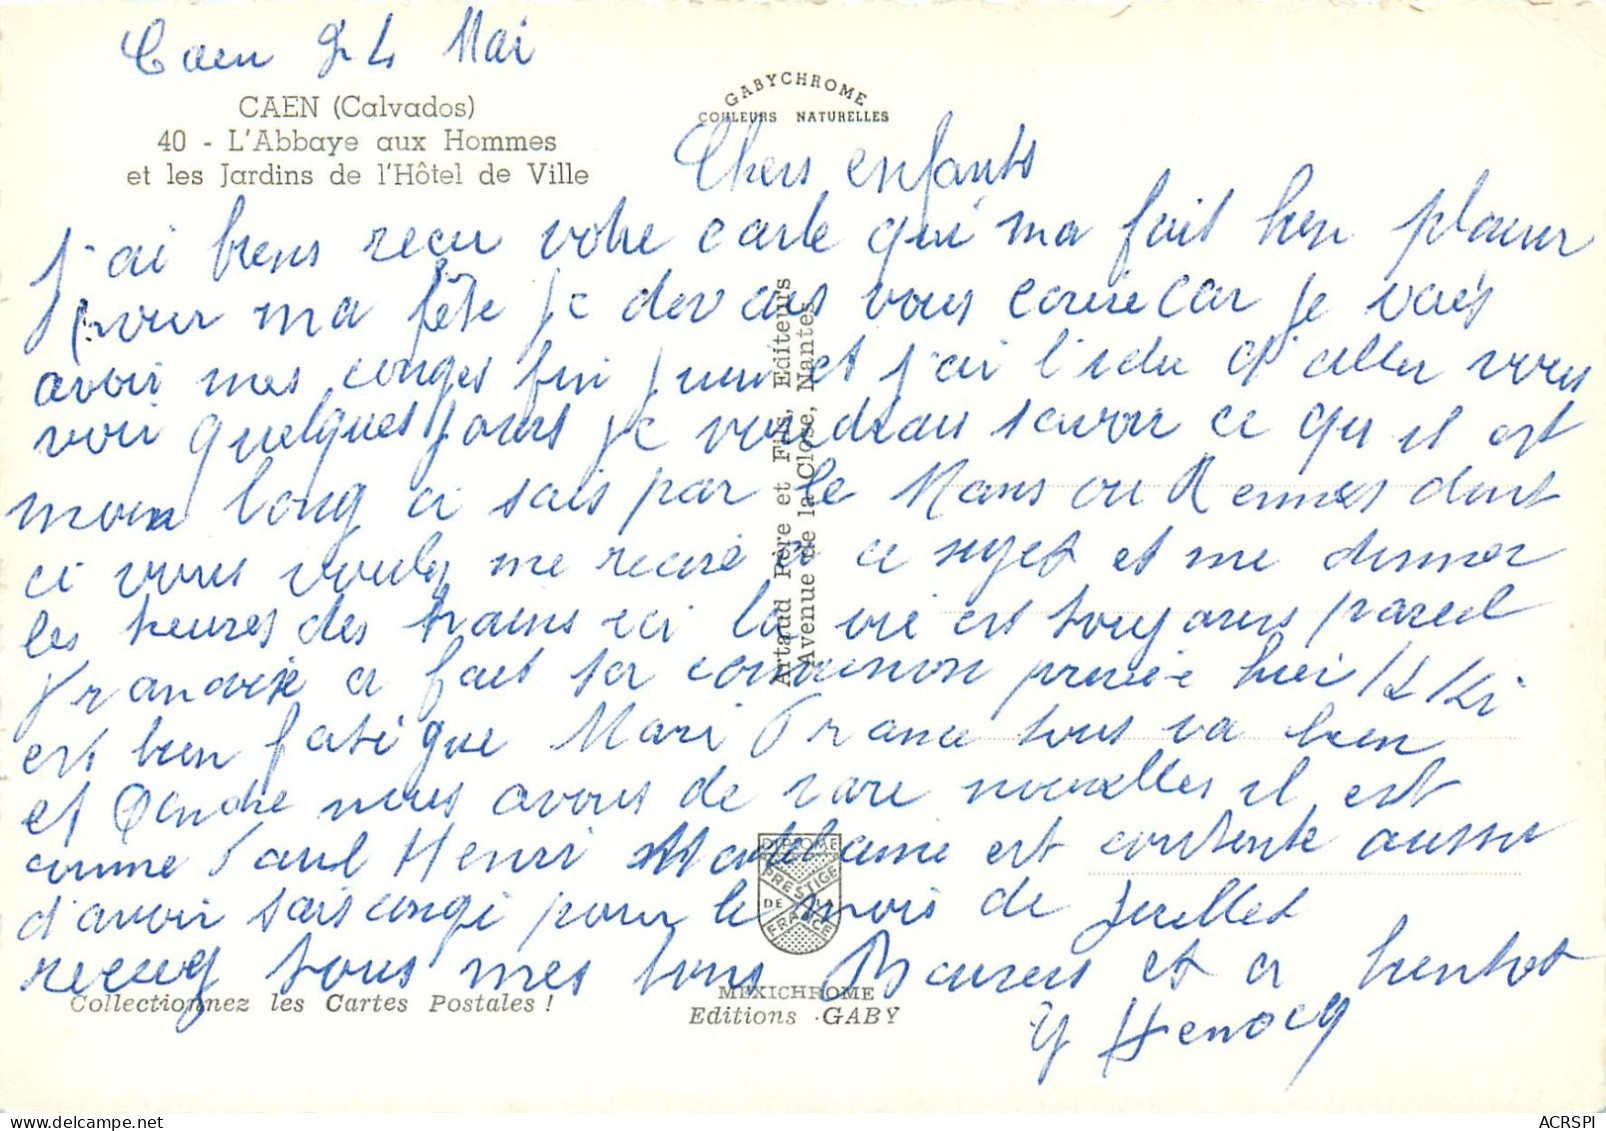 Caen 24 Mai
CAEN (Calvados)
40 - L'Abbaye aux Hommes
et les Jardins de l'Hôtel de Ville
GABYCHROME
COULEURS NATURELLES
Chers enfants
J'ai biens recu votre carte qui ma fait bien plaisir
pour ma fête je devais vous ecrire car je vais
avoir mes conges fin juin et j'ai l'idee d'aller vous
voir quelques jours je voudrais savoir ce qu il est
moins long a sais par le Mans ou Rennes dont
ci vous vouley me recrire a ce sujet et me donner
les heures des trains ici la vie est toujours pareil
Francoise a fait sa communion privée hier Kiki
est bien fatigue Mari France tous va bien
et Andre nous avons de rare nouvelles il est
comme Paul Henri est contente aussi
d'avoir sais congé pour le mois de juillet
recevey tous mes bons Baisers et a bientot
Y Henocq
Artaud Père et Fils, Editeurs
Avenue de la Close, Nantes
DIPLOME
PRESTIGE
DE LA
FRANCE
Collectionnez les Cartes Postales !
MEXICHROME
Editions GABY
ACRSPI